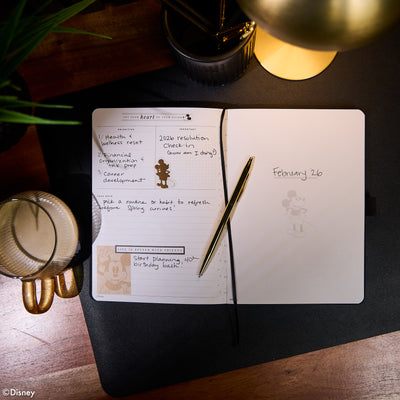 heart
IMPORTANT
1. Health &
Wellness reset
2. Financial
Organization &
tax prep
3. Career
development
2026 resolution
Check-in
(how am I doing?)
pick a routine or habit to refresh
before Spring arrives!
LIFE IS BETTER WITH FRIENDS
Start planning 40th
birthday bash!
February 26
©Disney